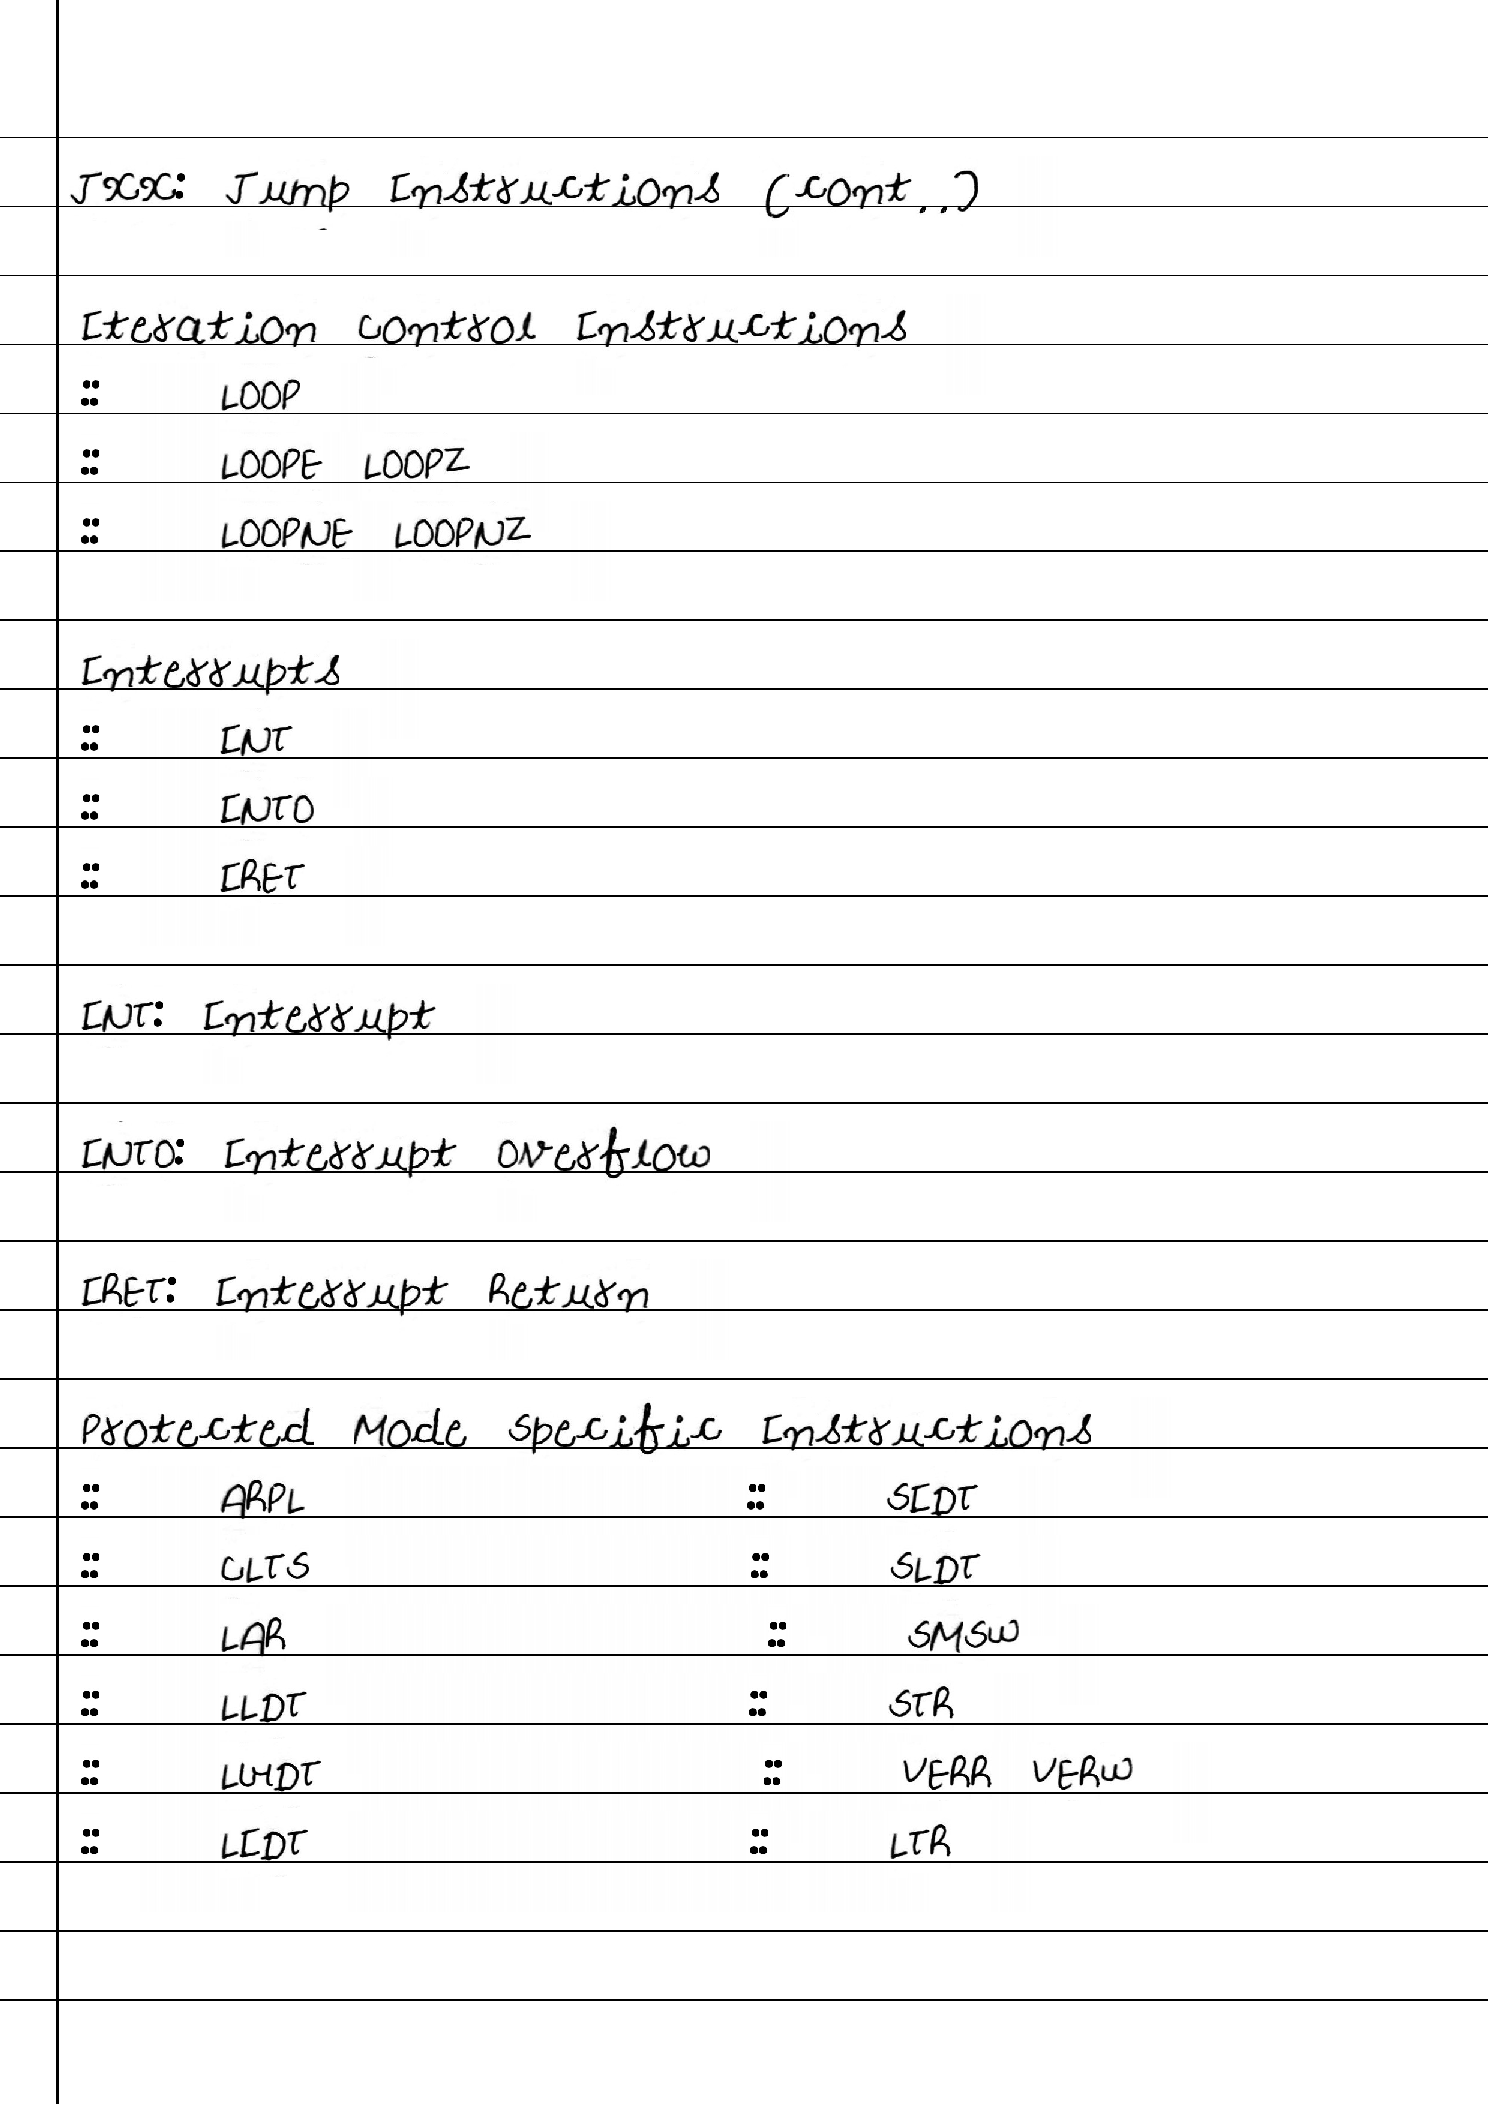 Jxx: Jump Instructions (cont..)
Iteration Control Instructions
:: LOOP
:: LOOPE LOOPZ
:: LOOPNE LOOPNZ
Interrupts
:: INT
:: INTO
:: IRET
INT: Interrupt
INTO: Interrupt Overflow
IRET: Interrupt Return
Protected Mode Specific Instructions
:: ARPL :: SIDT
:: CLTS :: SLDT
:: LAR :: SMSW
:: LLDT :: STR
:: LGDT :: VERR VERW
:: LIDT :: LTR